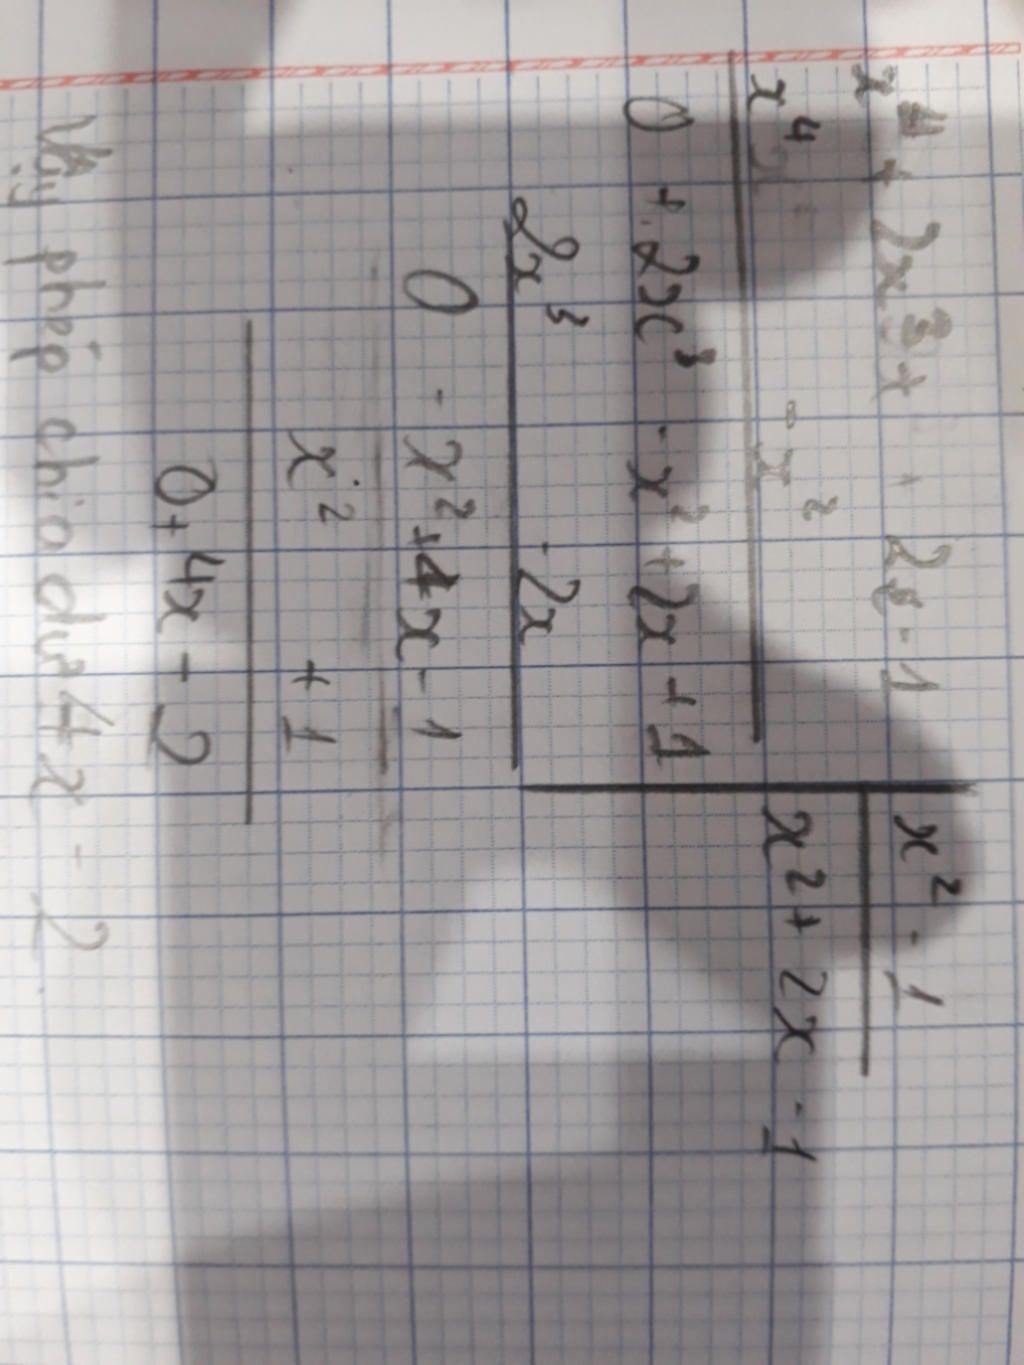 x⁴ + 2x³ + 2x - 1 | x² - 1
x⁴ - x² | x² + 2x - 1
0 + 2x³ - x² + 2x + 1
2x³ - 2x
0 - x² + 4x - 1
x² + 1
0 + 4x - 2
Vậy phép chia dư 4x - 2